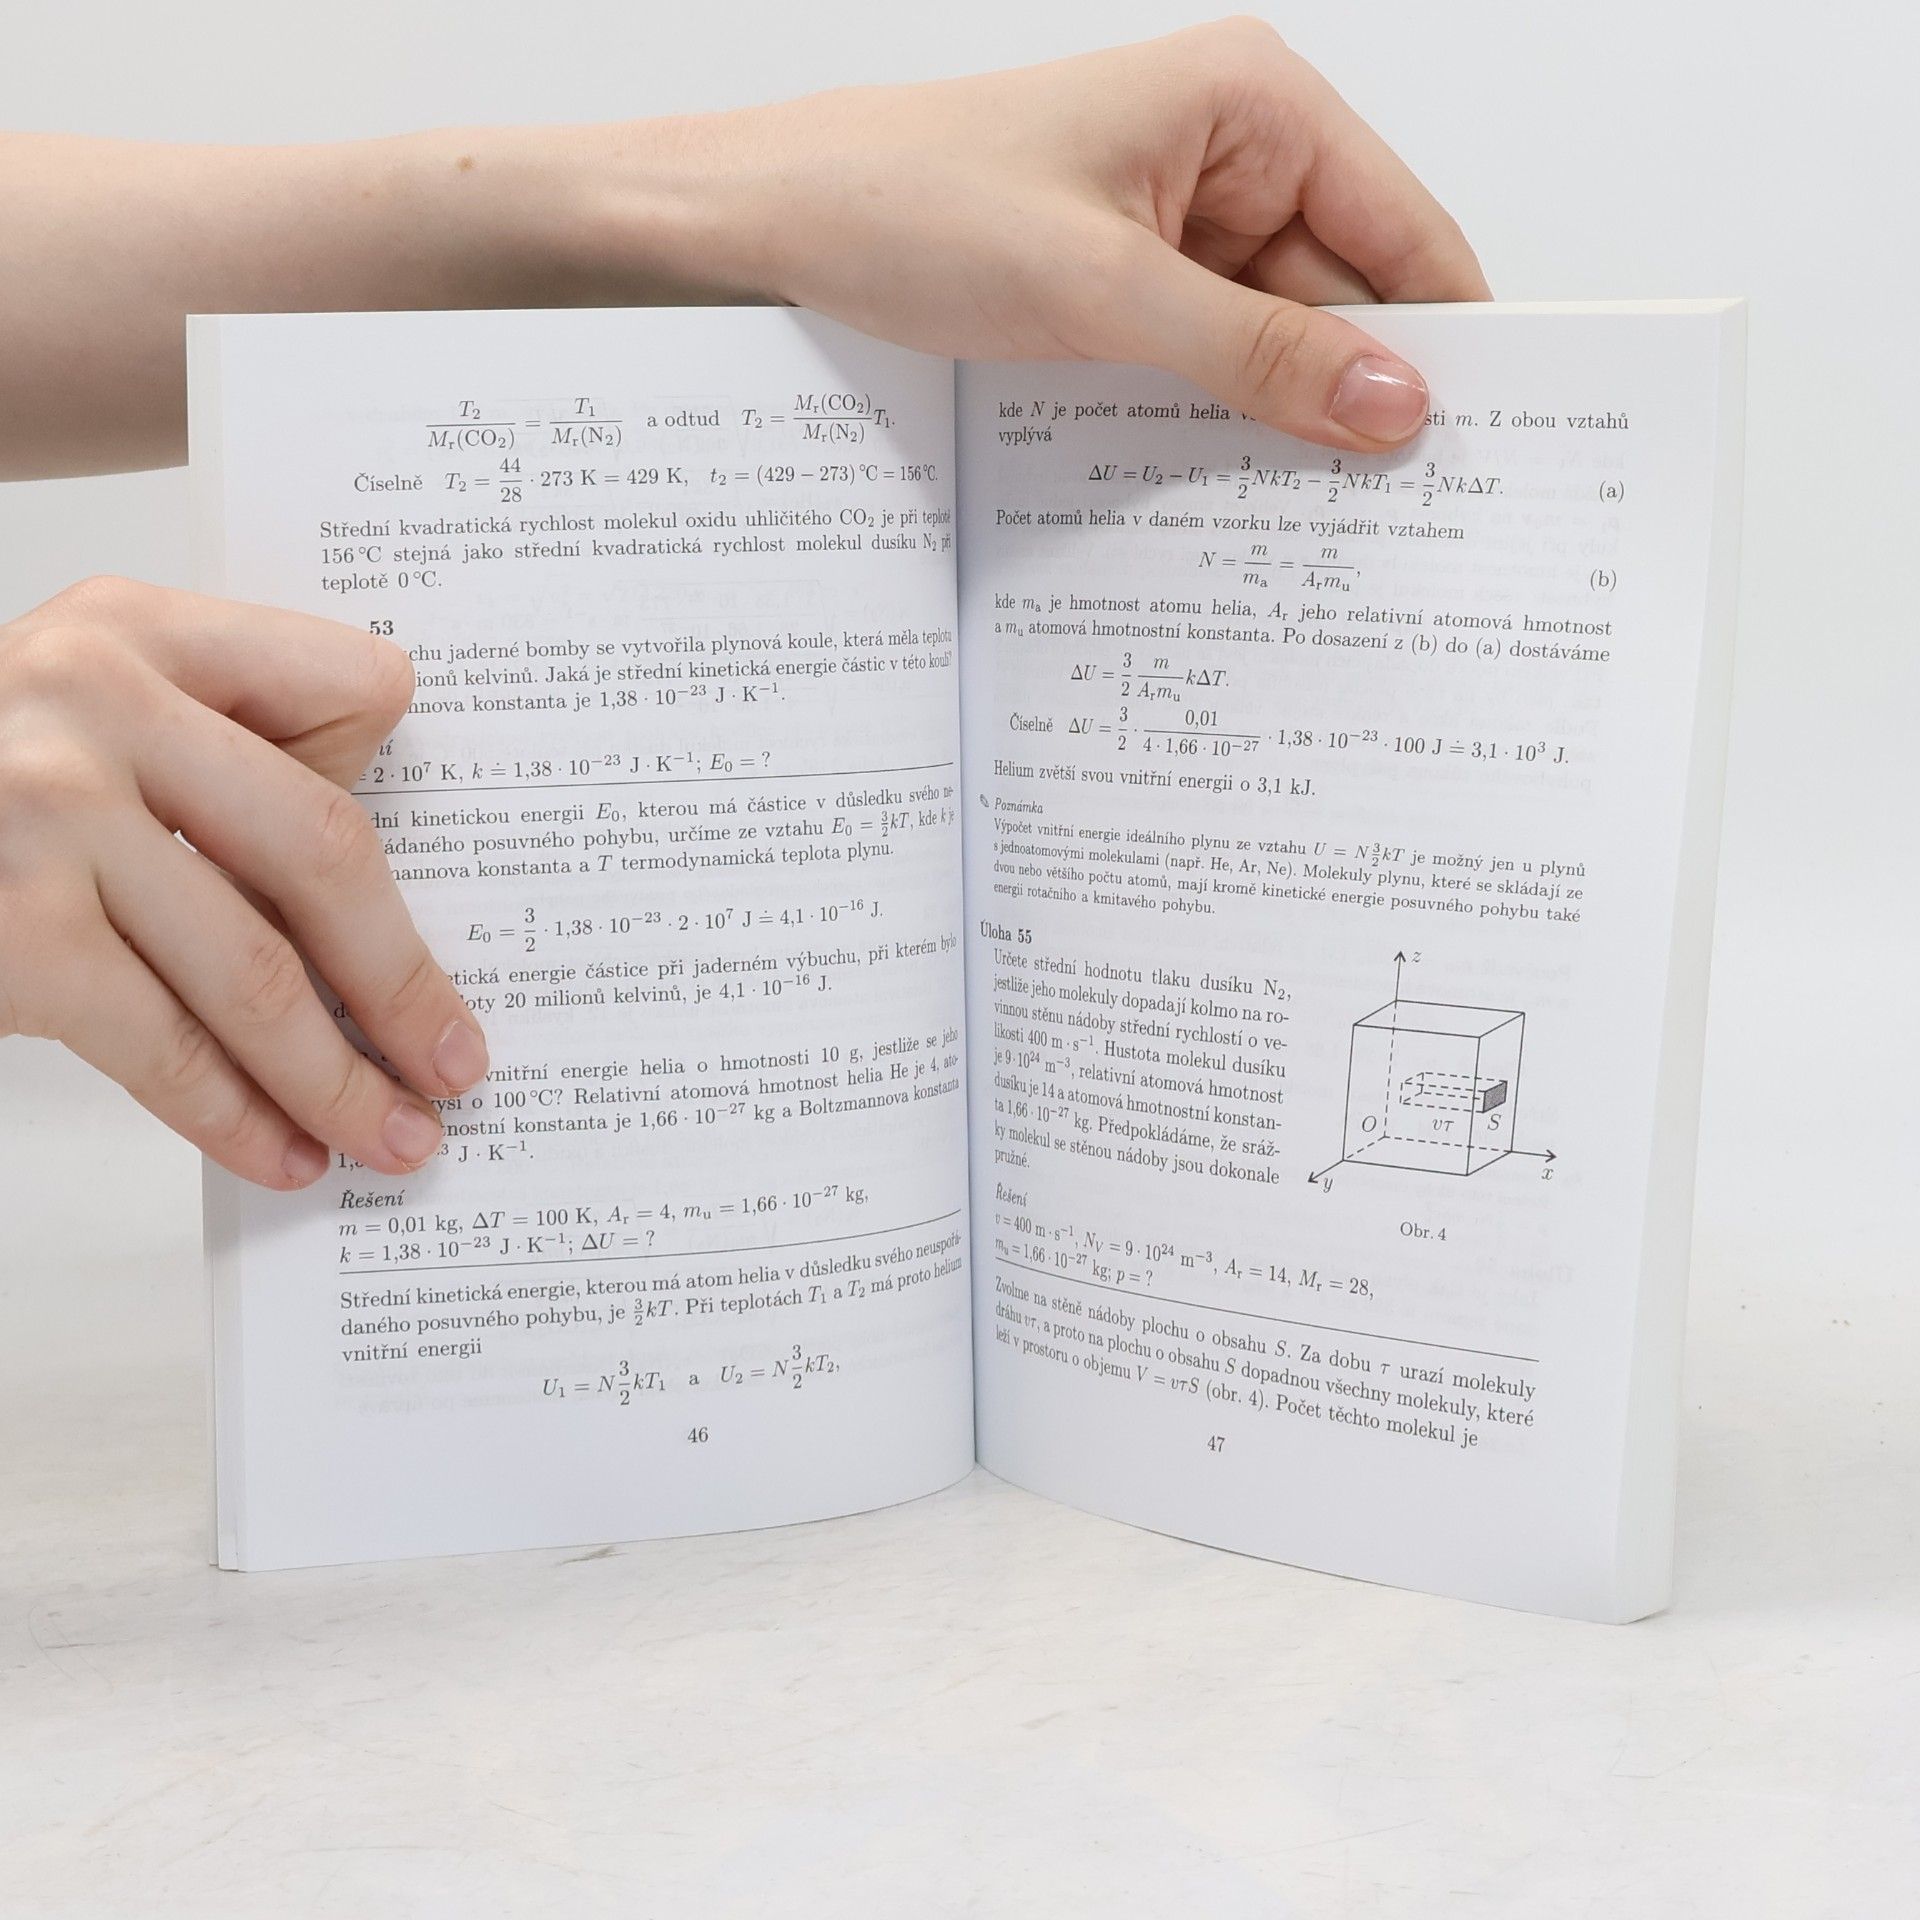 T₂/Mᵣ(CO₂) = T₁/Mᵣ(N₂) a odtud T₂ = Mᵣ(CO₂)/Mᵣ(N₂) T₁.
Číselně T₂ = 44/28 · 273 K = 429 K, t₂ = (429 − 273) °C = 156 °C.
Střední kvadratická rychlost molekul oxidu uhličitého CO₂ je při teplotě
156 °C stejná jako střední kvadratická rychlost molekul dusíku N₂ při
teplotě 0 °C.
53
jaderné bomby se vytvořila plynová koule, která měla teplotu
kelvinů. Jaká je střední kinetická energie částic v této kouli?
konstanta je 1,38 · 10⁻²³ J · K⁻¹.
= 2 · 10⁷ K, k ≐ 1,38 · 10⁻²³ J · K⁻¹; E₀ = ?
kinetickou energii E₀, kterou má částice v důsledku svého ne-
posuvného pohybu, určíme ze vztahu E₀ = 3/2 kT, kde k je
konstanta a T termodynamická teplota plynu.
E₀ = 3/2 · 1,38 · 10⁻²³ · 2 · 10⁷ J ≐ 4,1 · 10⁻¹⁶ J.
energie částice při jaderném výbuchu, při kterém bylo
20 milionů kelvinů, je 4,1 · 10⁻¹⁶ J.
vnitřní energie helia o hmotnosti 10 g, jestliže se jeho
o 100 °C? Relativní atomová hmotnost helia He je 4, ato-
konstanta je 1,66 · 10⁻²⁷ kg a Boltzmannova konstanta
J · K⁻¹.
Řešení
m = 0,01 kg, ΔT = 100 K, Aᵣ = 4, mᵤ = 1,66 · 10⁻²⁷ kg,
k = 1,38 · 10⁻²³ J · K⁻¹; ΔU = ?
Střední kinetická energie, kterou má atom helia v důsledku svého neuspořá-
daného posuvného pohybu, je 3/2 kT. Při teplotách T₁ a T₂ má proto helium
vnitřní energii
U₁ = N 3/2 kT₁ a U₂ = N 3/2 kT₂,
46
kde N je počet atomů helia m. Z obou vztahů
vyplývá
ΔU = U₂ − U₁ = 3/2 NkT₂ − 3/2 NkT₁ = 3/2 NkΔT. (a)
Počet atomů helia v daném vzorku lze vyjádřit vztahem
N = m/mₐ = m/Aᵣmᵤ, (b)
kde mₐ je hmotnost atomu helia, Aᵣ jeho relativní atomová hmotnost
a mᵤ atomová hmotnostní konstanta. Po dosazení z (b) do (a) dostáváme
ΔU = 3/2 m/Aᵣmᵤ kΔT.
Číselně ΔU = 3/2 · 0,01/4 · 1,66 · 10⁻²⁷ · 1,38 · 10⁻²³ · 100 J ≐ 3,1 · 10³ J.
Helium zvětší svou vnitřní energii o 3,1 kJ.
✎ Poznámka
Výpočet vnitřní energie ideálního plynu ze vztahu U = N 3/2 kT je možný jen u plynů
s jednoatomovými molekulami (např. He, Ar, Ne). Molekuly plynu, které se skládají ze
dvou nebo většího počtu atomů, mají kromě kinetické energie posuvného pohybu také
energii rotačního a kmitavého pohybu.
Úloha 55
Určete střední hodnotu tlaku dusíku N₂,
jestliže jeho molekuly dopadají kolmo na ro-
vinnou stěnu nádoby střední rychlostí o ve-
likosti 400 m · s⁻¹. Hustota molekul dusíku
je 9 · 10²⁴ m⁻³, relativní atomová hmotnost
dusíku je 14 a atomová hmotnostní konstan-
ta 1,66 · 10⁻²⁷ kg. Předpokládáme, že sráž-
ky molekul se stěnou nádoby jsou dokonale
pružné.
z
O
vτ
S
x
y
Obr. 4
Řešení
v = 400 m · s⁻¹, N_V = 9 · 10²⁴ m⁻³, Aᵣ = 14, Mᵣ = 28,
mᵤ = 1,66 · 10⁻²⁷ kg; p = ?
Zvolme na stěně nádoby plochu o obsahu S. Za dobu τ urazí molekuly
dráhu vτ, a proto na plochu o obsahu S dopadnou všechny molekuly, které
leží v prostoru o objemu V = vτS (obr. 4). Počet těchto molekul je
47